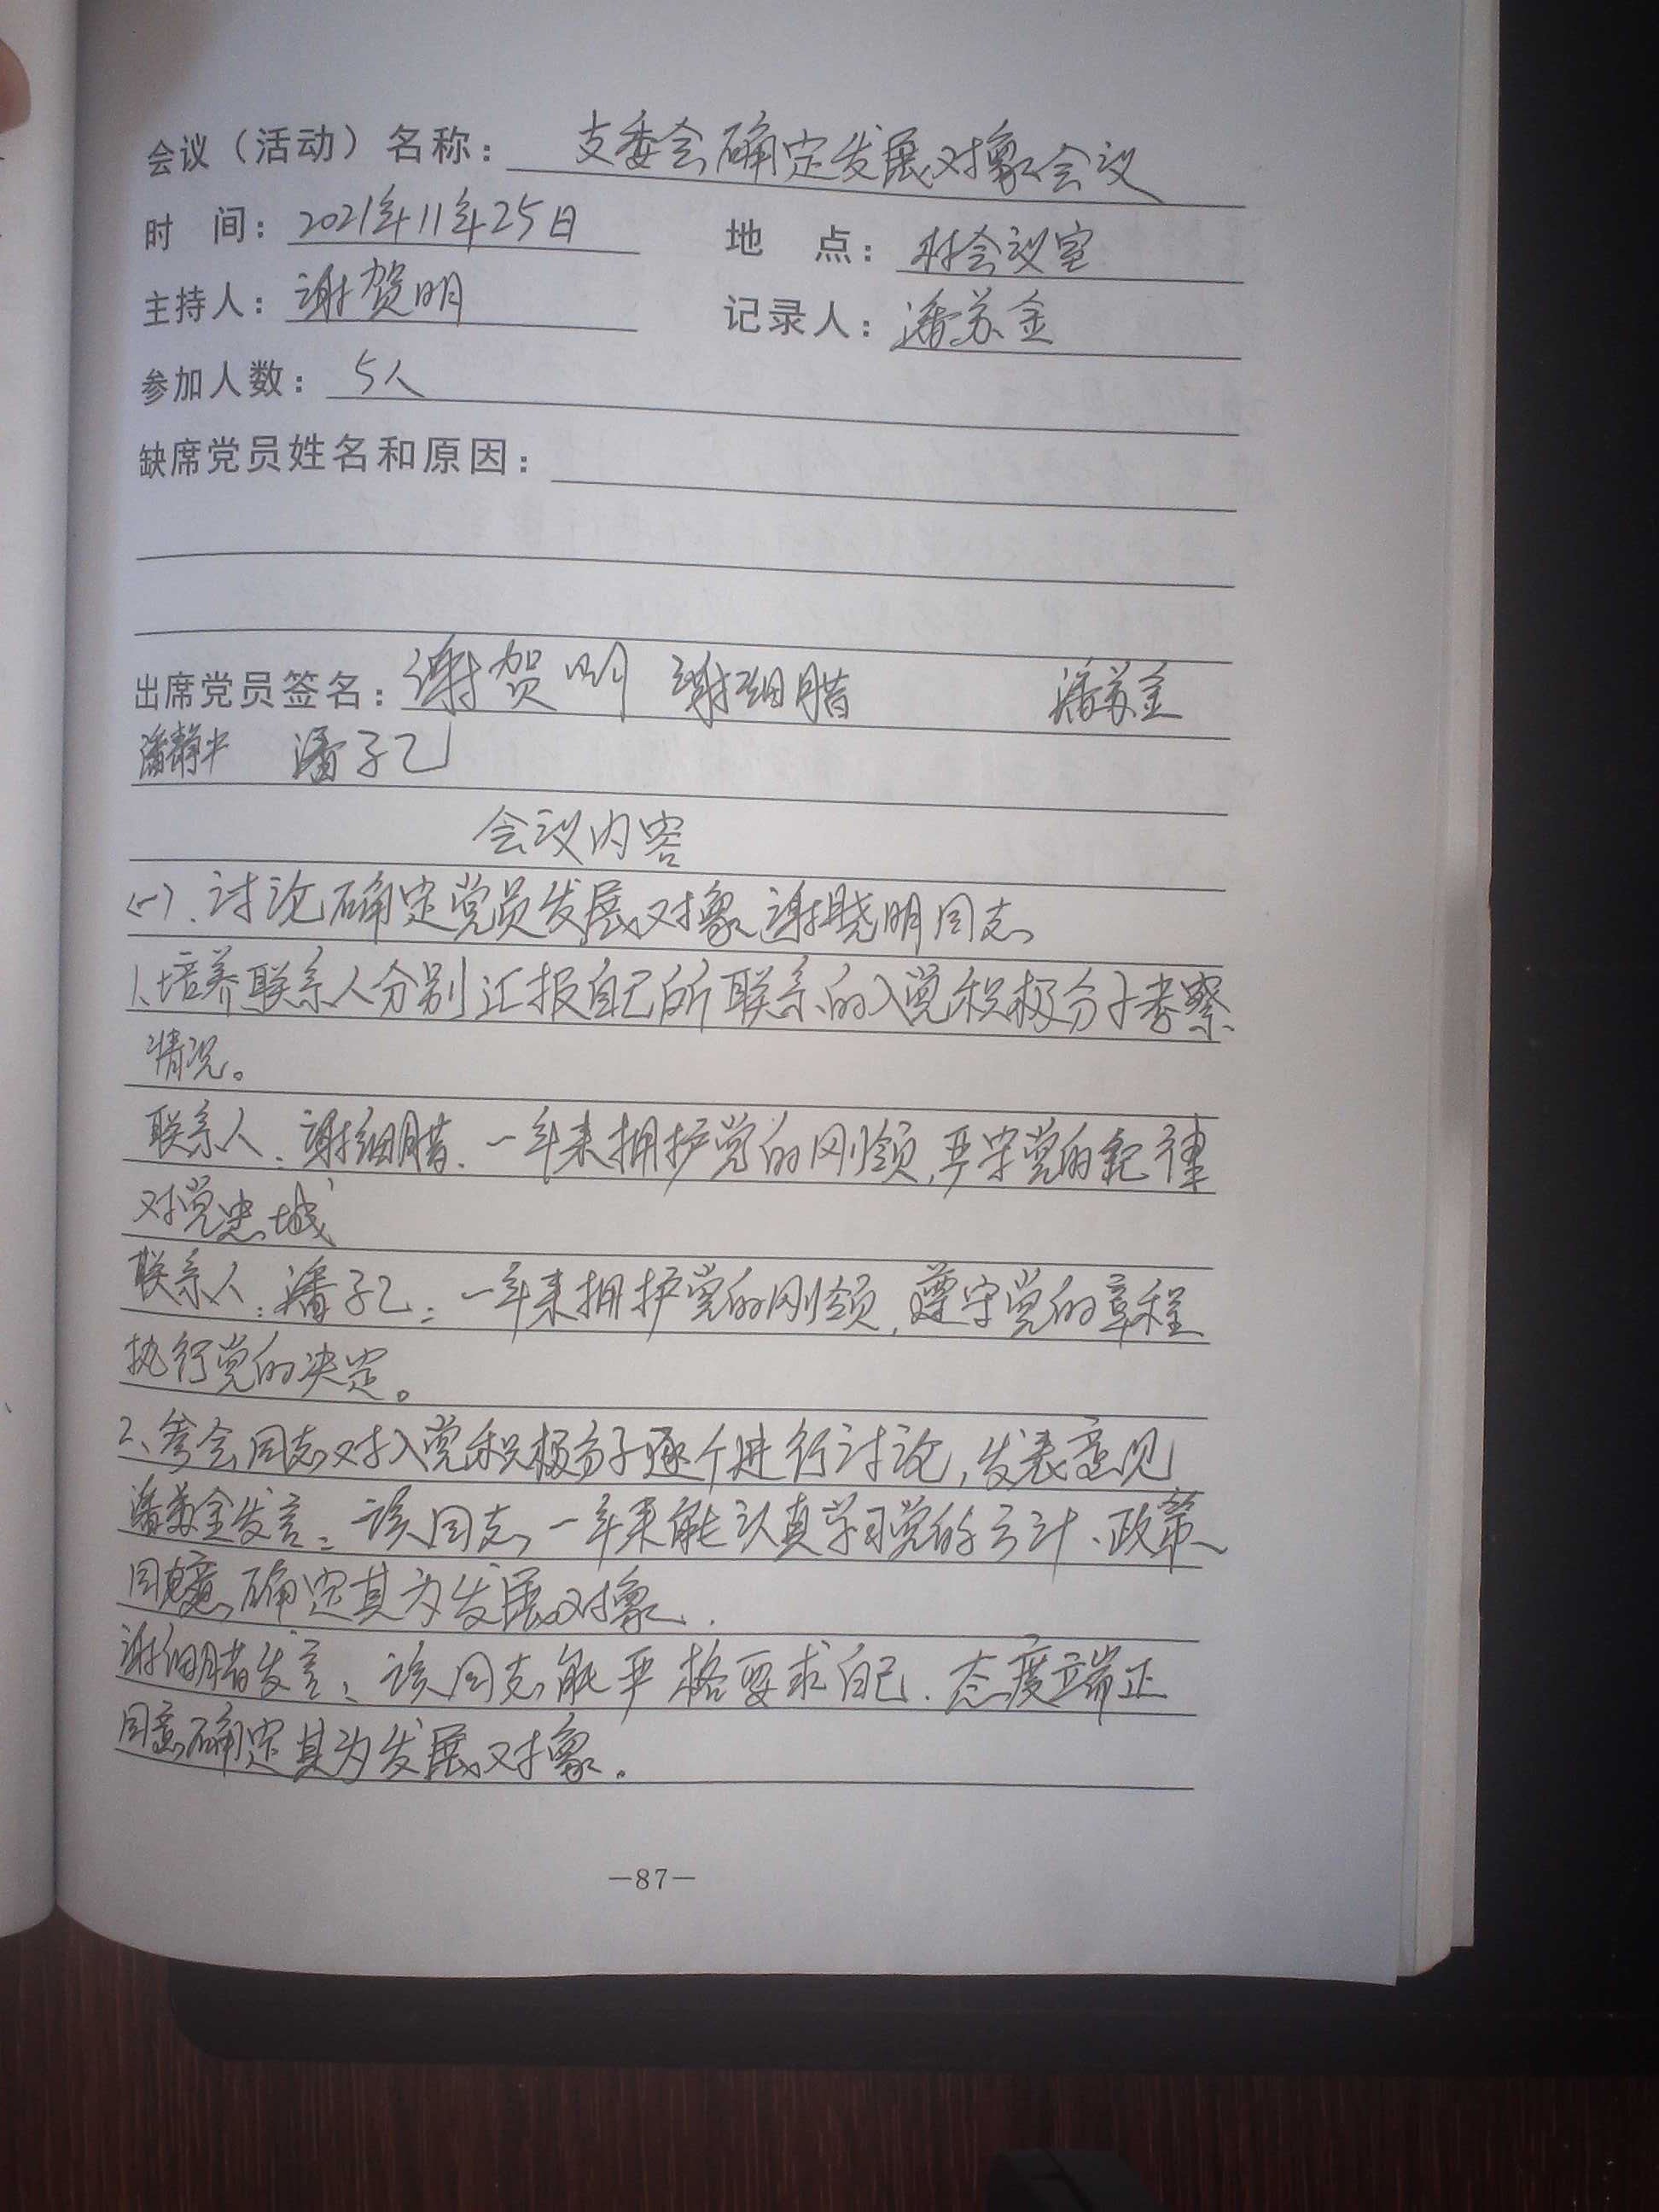 会议（活动）名称： 支委会确定发展对象会议
时 间： 2021年11年25日 地 点： 村会议室
主持人： 谢贺明 记录人： 潘苏金
参加人数： 5人
缺席党员姓名和原因：
出席党员签名： 谢贺明 谢细腊 潘苏金
潘静中 潘子乙
会议内容
(一).讨论确定党员发展对象谢晓明同志
1、培养联系人分别汇报自己所联系的入党积极分子考察
情况。
联系人：谢细腊、一年来拥护党的刚领,严守党的纪律
对党忠城
联系人：潘子乙：一年来拥护党的刚领,遵守党的章程
执行党的决定。
2、参会同志对入党积极分子逐个进行讨论,发表意见
潘苏金发言：该同志一年来能认真学习党的方针、政策、
同意确定其为发展对象.
谢细腊发言：该同志能严格要求自己.态度端正
同意确定其为发展对象.
—87—